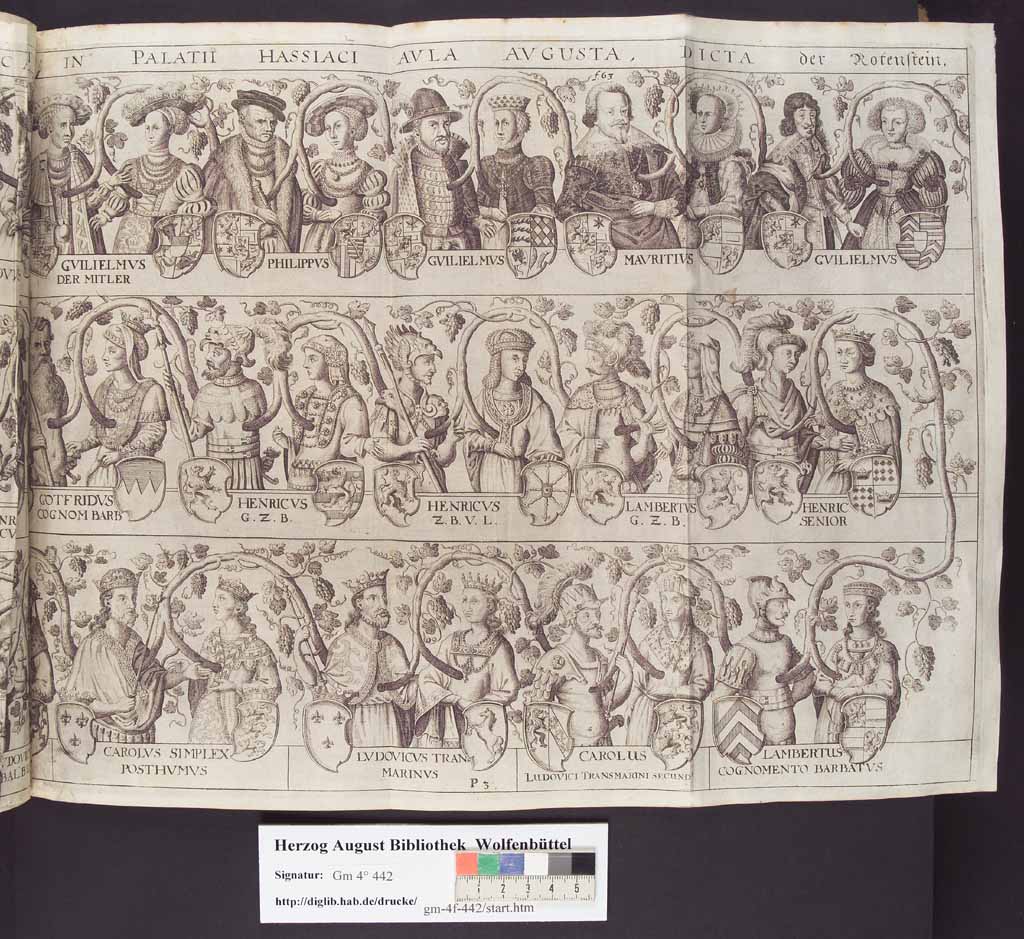 IN PALATII HASSIACI AVLA AVGUSTA, DICTA der Rotenstein.
GVILIELMVS
DER MITLER
PHILIPPVS
GVILIELMVS
MAVRITIVS
GVILIELMVS
GOTFRIDVS
COGNOM BARB
HENRICVS
G. Z. B.
HENRICVS
Z. B. V. L.
LAMBERTVS
G. Z. B.
HENRIC
SENIOR
CAROLVS SIMPLEX
POSTHVMVS
LVDOVICVS TRANS
MARINVS
CAROLUS
LUDOVICI TRANSMARINI SECUND
LAMBERTUS
COGNOMENTO BARBATVS
P 3
Herzog August Bibliothek Wolfenbüttel
Signatur: Gm 4° 442
http://diglib.hab.de/drucke/ gm-4f-442/start.htm
1 2 3 4 5